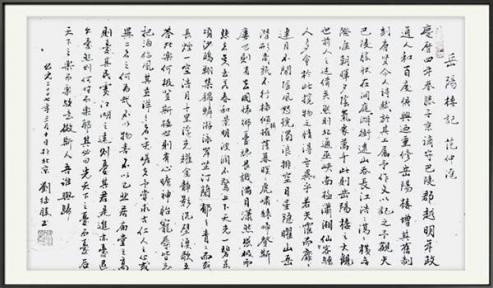 岳陽樓記 范仲淹
慶曆四年春滕子京謫守巴陵郡越明年政
通人和百廢俱興迺重修岳陽樓增其舊制
刻唐賢今人詩賦於其上屬予作文以記之予觀夫
巴陵勝狀在洞庭一湖銜遠山吞長江浩浩湯湯橫無
際涯朝暉夕陰氣象萬千此則岳陽樓之大觀
也前人之述備矣然則北通巫峽南極瀟湘遷客騷
人多會於此覽物之情得無異乎若夫霪雨霏霏
連月不開陰風怒號濁浪排空日星隱曜山岳
潛形商旅不行檣傾楫摧薄暮冥冥虎嘯猿啼登斯
樓也則有去國懷鄉憂讒畏譏滿目蕭然感極而
悲者矣至若春和景明波瀾不驚上下天光一碧萬
頃沙鷗翔集錦鱗游泳岸芷汀蘭郁郁青青而或
長煙一空皓月千里浮光耀金靜影沉璧漁歌互
答此樂何極登斯樓也則有心曠神怡寵辱皆忘
把酒臨風其喜洋洋者矣嗟夫予嘗求古仁人之心或
異二者之為何哉不以物喜不以己悲居廟堂之高
則憂其民處江湖之遠則憂其君是進亦憂退
亦憂然則何時而樂耶其必曰先天下之憂而憂后
天下之樂而樂歟噫微斯人吾誰與歸
公元二〇〇七年三月於北京 劉